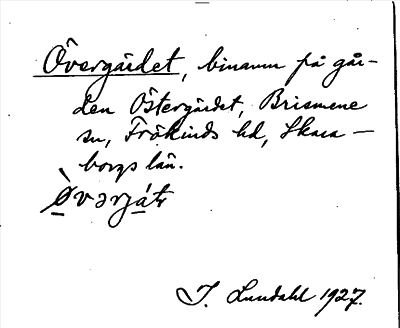 Övergärdet, binamn på går-
den Östergärdet, Brismene
sn, Frökinds hd, Skara-
borgs län.
Øvərjáṭ
I. Lundahl 1927.